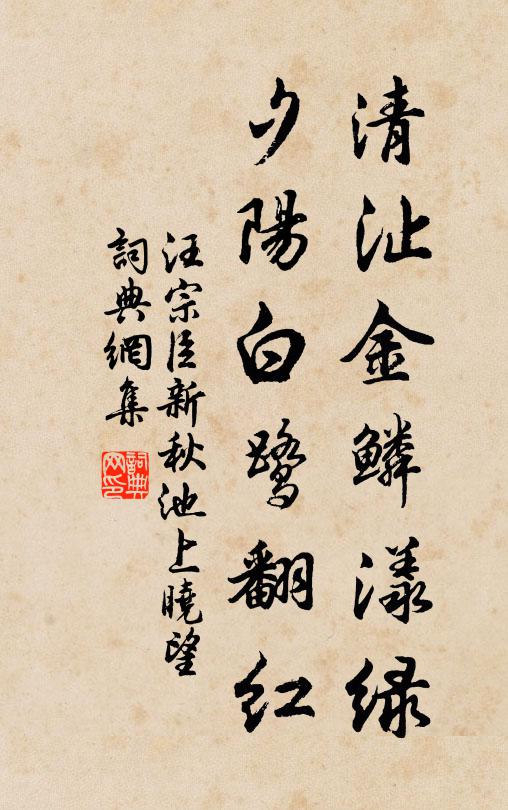 清沚金鱗漾绿
夕陽白鷺翻红
汪宗臣新秋池上曉望
詞典網集
詞典网印